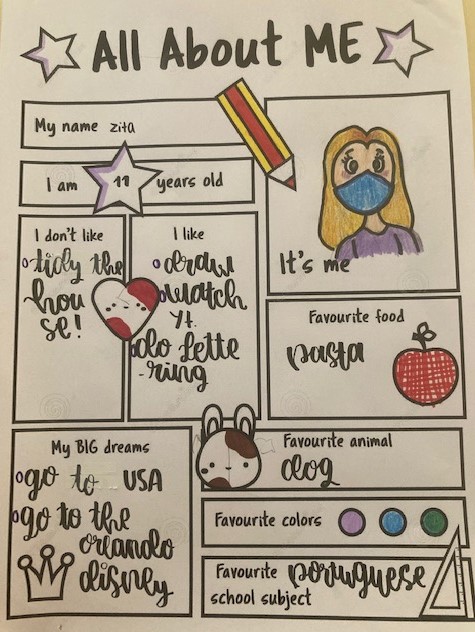 All About ME
My name zita
I am 11 years old
It's me
I don't like
tidy the
hou
se!
I like
draw
watch
yt.
do lette
-ring
Favourite food
pasta
My BIG dreams
go to USA
go to the
orlando
disney
Favourite animal
dog
Favourite colors
Favourite school subject
portuguese